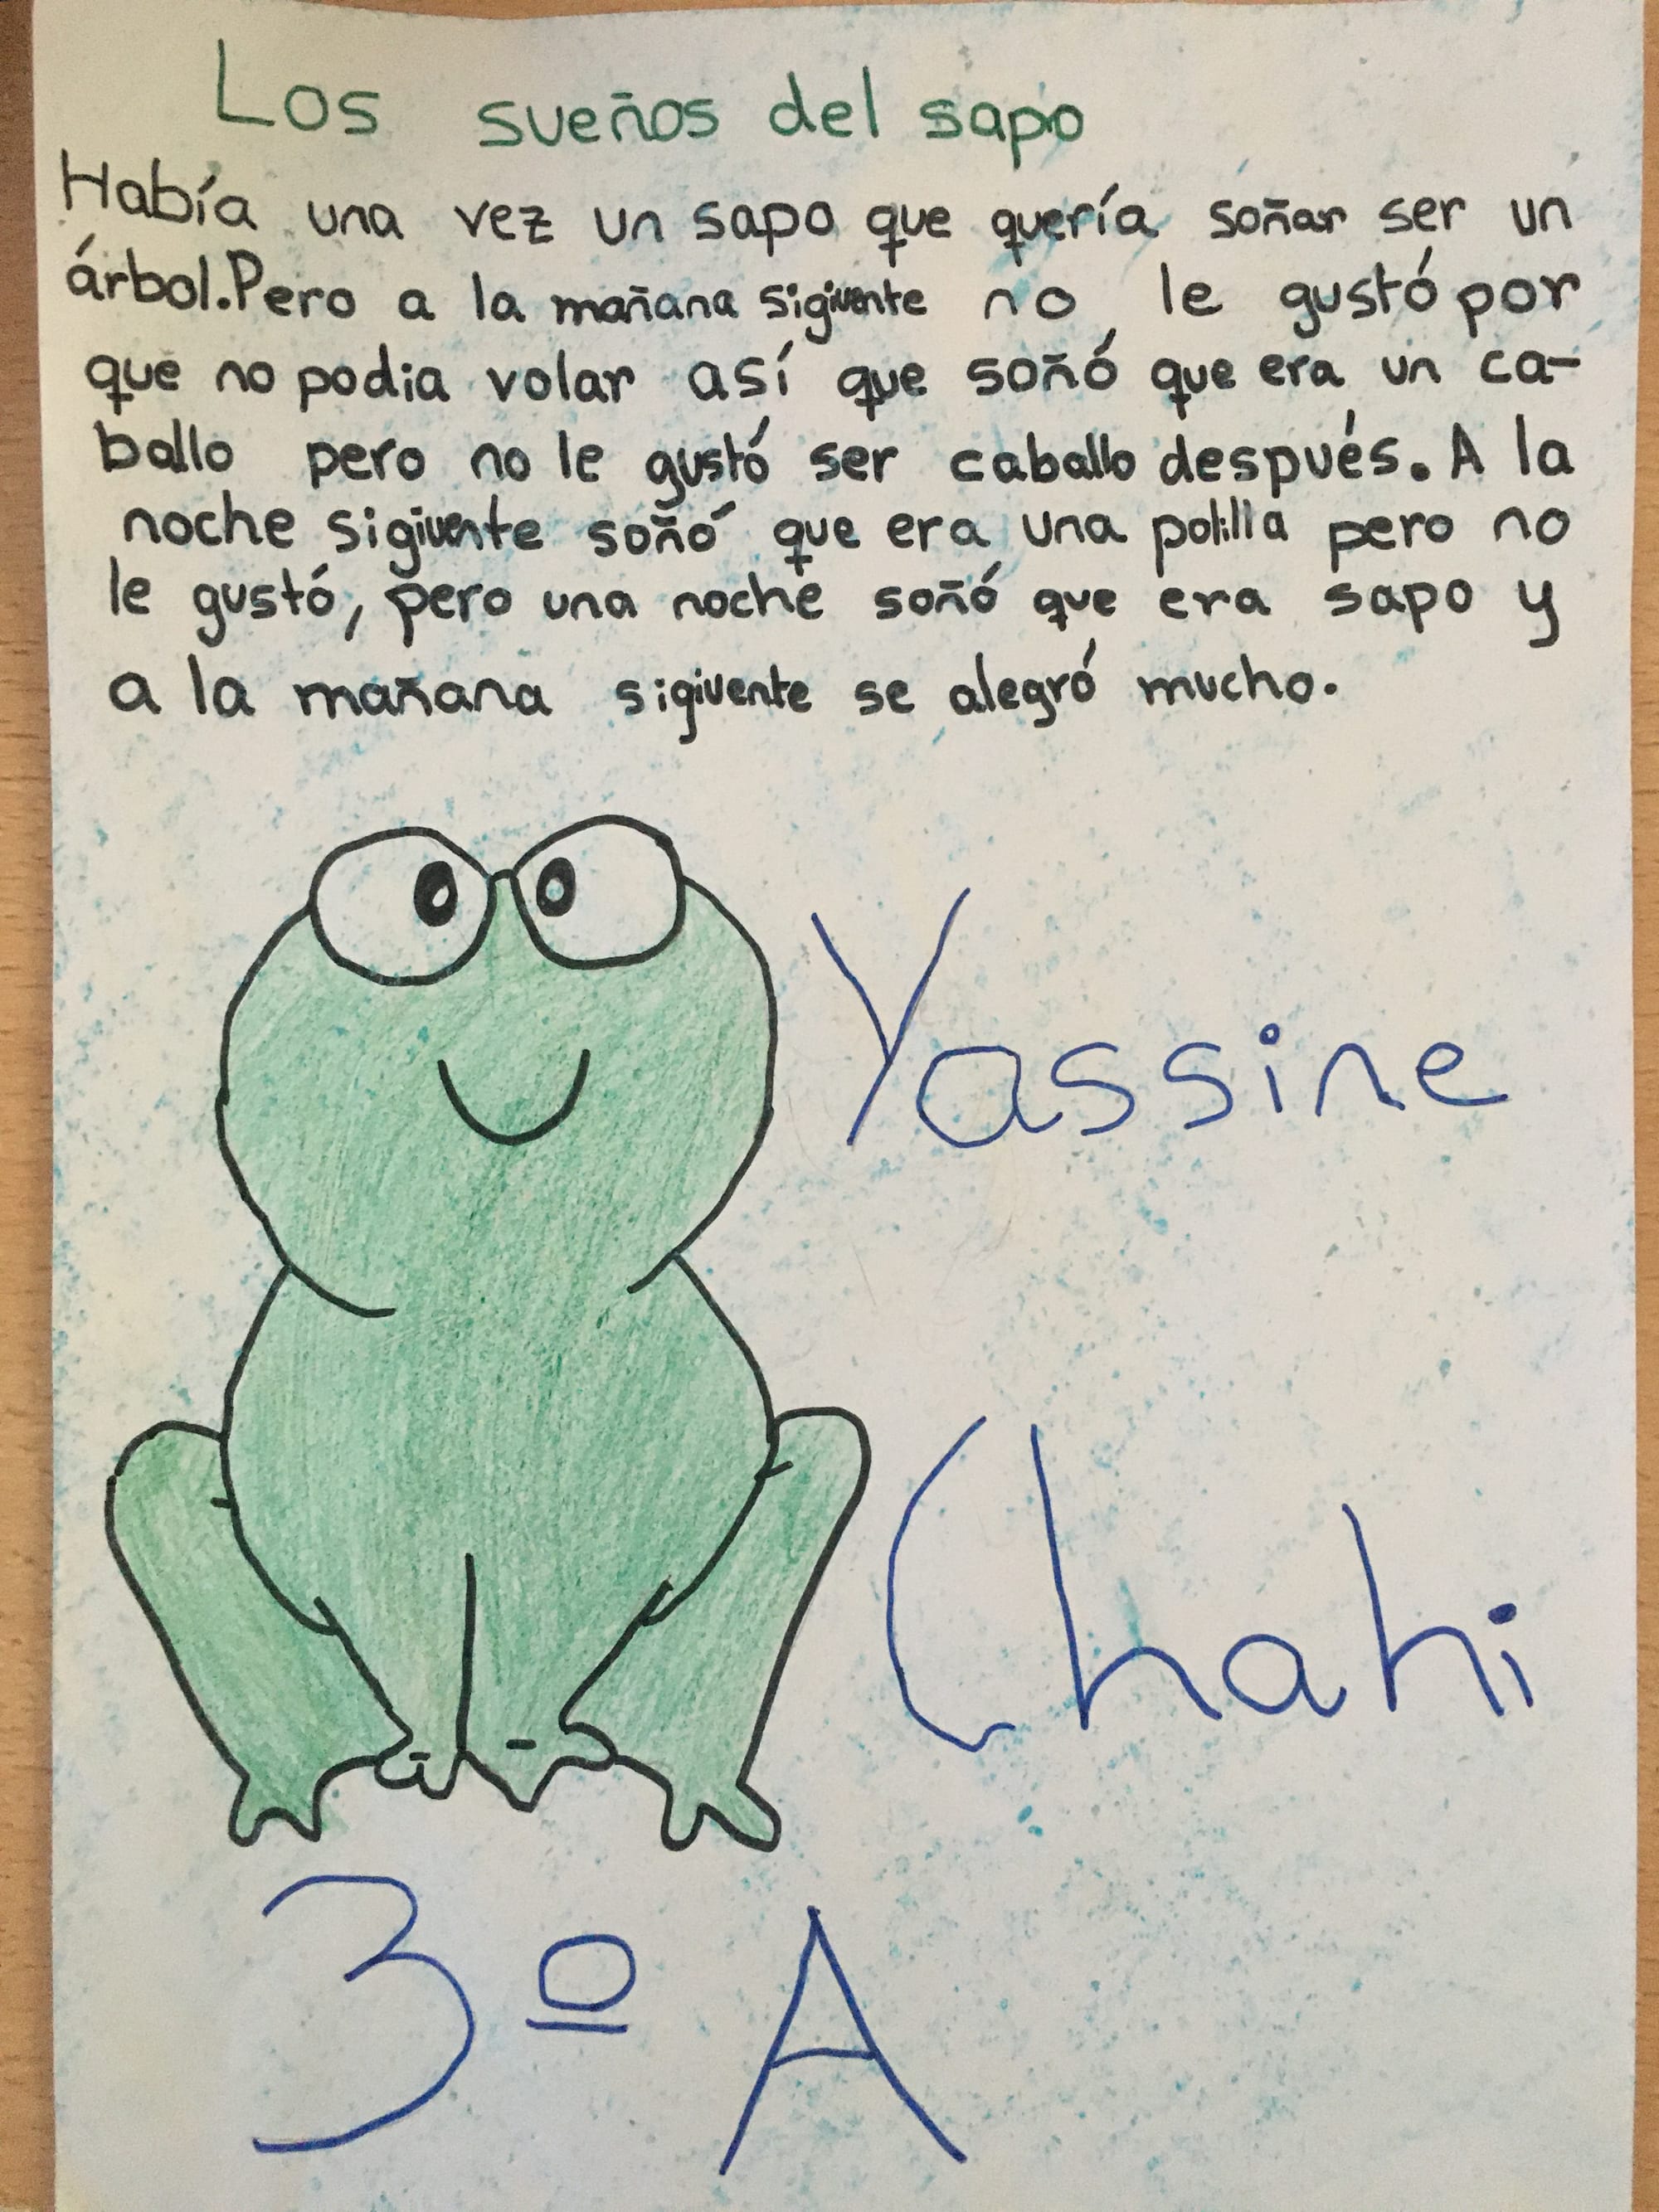 Los sueños del sapo
Había una vez un sapo que quería soñar ser un
árbol.Pero a la mañana sigiuente no le gustó por
que no podia volar así que soñó que era un ca-
ballo pero no le gustó ser caballo después. A la
noche sigiuente soñó que era una polilla pero no
le gustó, pero una noche soñó que era sapo y
a la mañana sigiuente se alegró mucho.
Yassine
Chahi
3º A